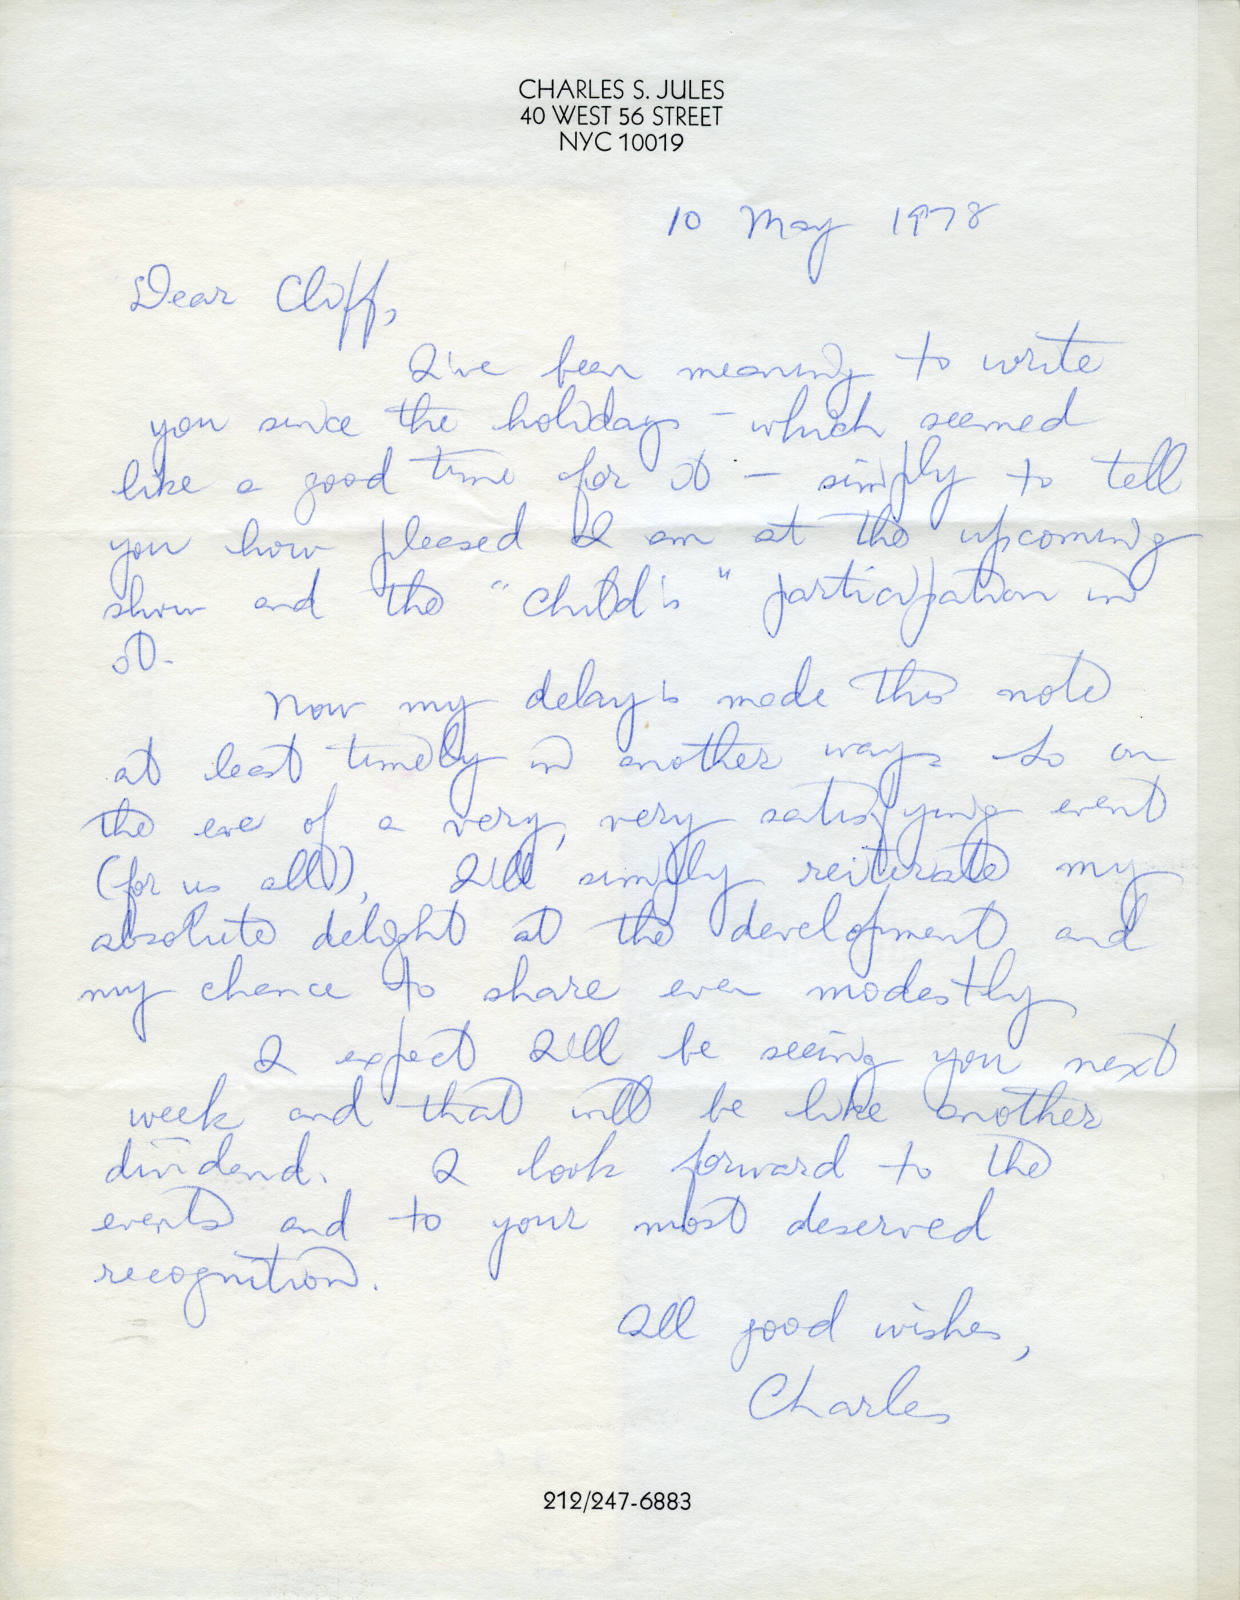 CHARLES S. JULES
40 WEST 56 STREET
NYC 10019
10 May 1978
Dear Cliff,
I've been meaning to write
you since the holidays – which seemed
like a good time for it – simply to tell
you how pleased I am at the upcoming
show and the "child's" participation in
it.
Now my delay's made this note
at least timely in another way. So on
the eve of a very, very satisfying event
(for us all), I'll simply reiterate my
absolute delight at the development and
my chance to share even modestly
I expect I'll be seeing you next
week and that will be like another
dividend. I look forward to the
events and to your most deserved
recognition.
All good wishes,
Charles
212/247-6883